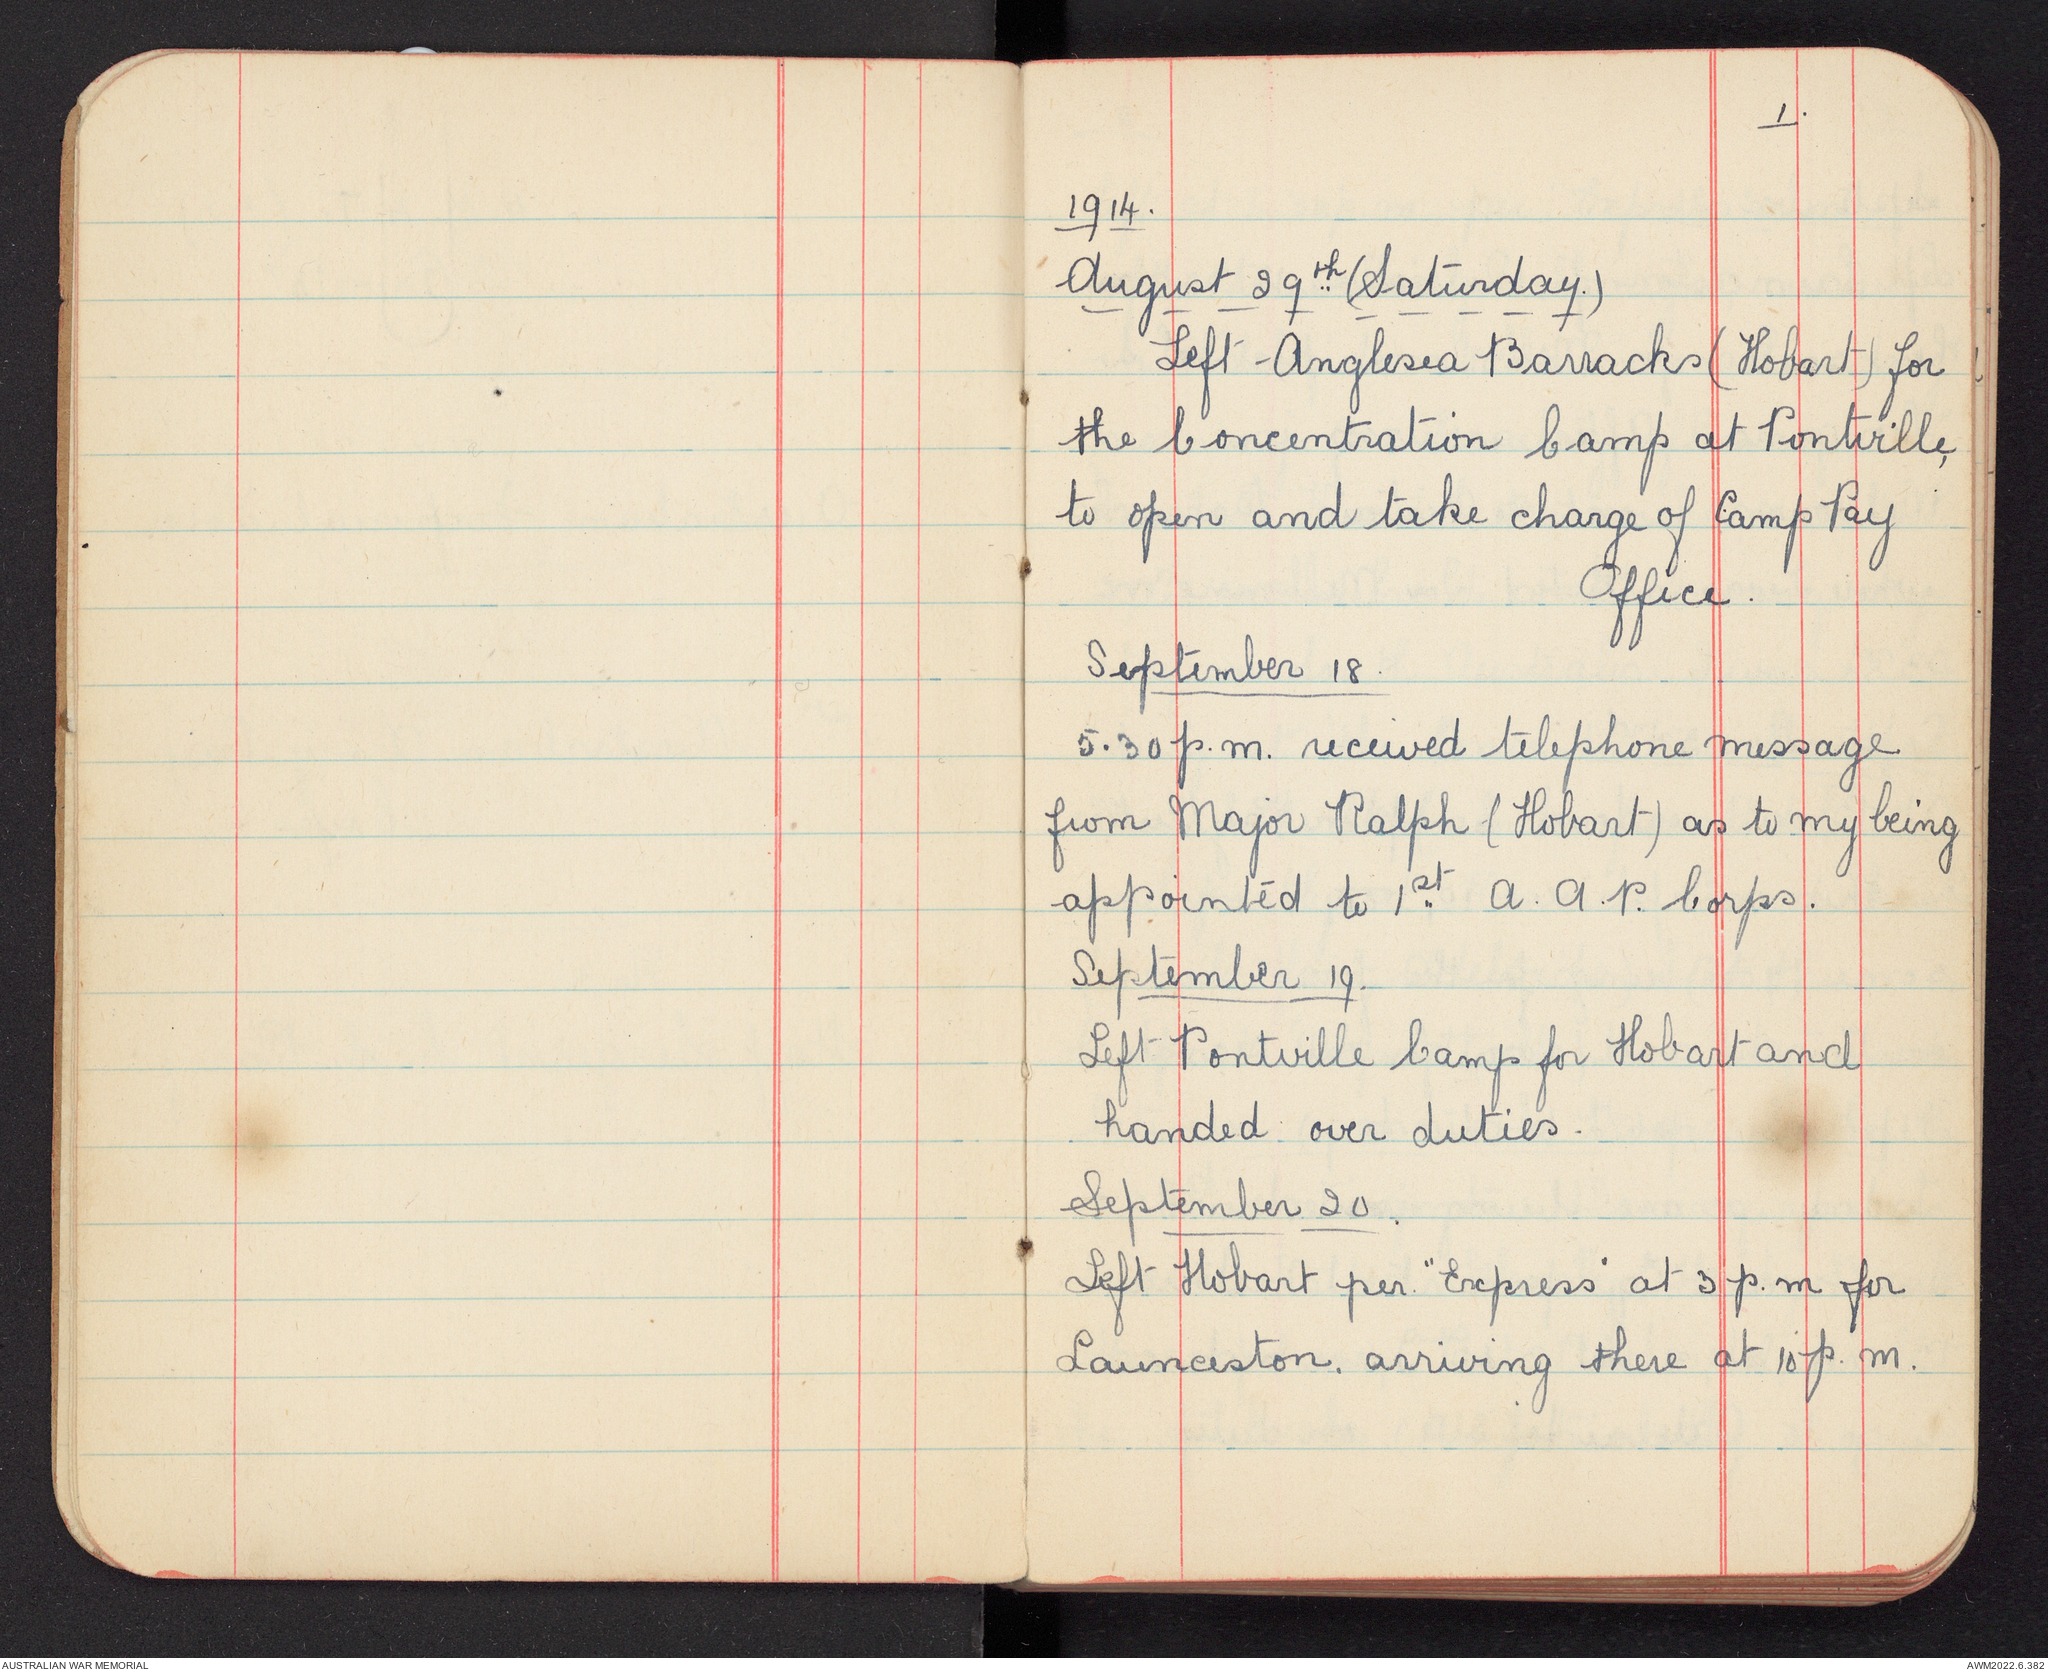 1.
1914.
August 29th (Saturday.)
Left Anglesea Barracks (Hobart) for
the Concentration Camp at Pontville,
to open and take charge of Camp Pay
Office.
September 18.
5.30 p.m. received telephone message
from Major Ralph (Hobart) as to my being
appointed to 1st A. A. P. Corps.
September 19.
Left Pontville Camp for Hobart and
handed over duties.
September 20.
Left Hobart per. "Express" at 3 p.m for
Launceston. arriving there at 10 p.m.
AUSTRALIAN WAR MEMORIAL
AWM2022.6.382